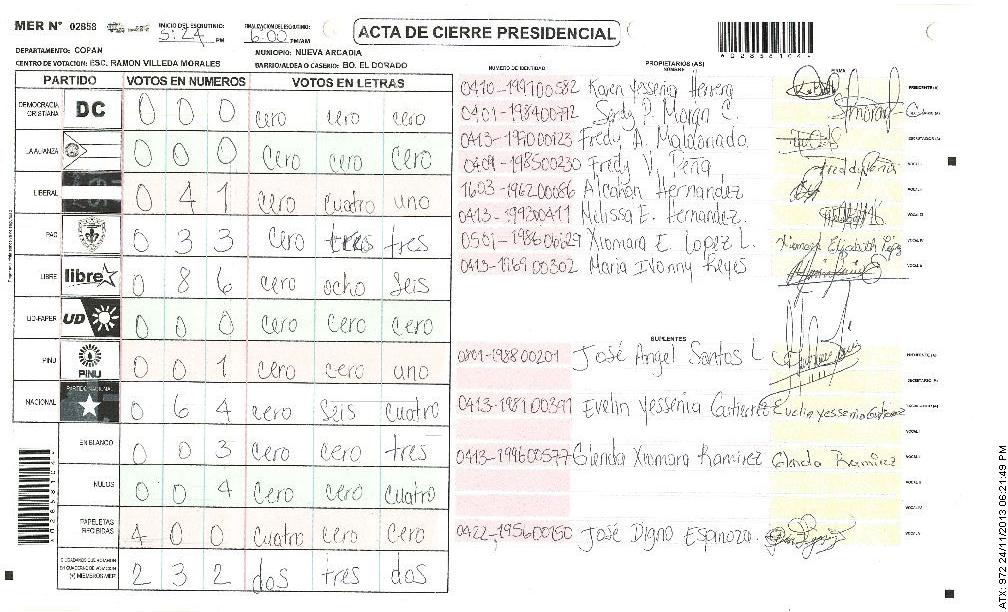 MER Nº 02858 INICIO DEL ESCRUTINIO: 5:24 PM FINALIZACION ESCRUTINIO: 6:00 PM/AM
ACTA DE CIERRE PRESIDENCIAL
A02858104
DEPARTAMENTO: COPAN MUNICIPIO: NUEVA ARCADIA
CENTRO DE VOTACION: ESC. RAMON VILLEDA MORALES BARRIO/ALDEA O CASERIO: BO. EL DORADO
PARTIDO VOTOS EN NUMEROS VOTOS EN LETRAS
DEMOCRACIA CRISTIANA DC 0 0 0 cero cero cero
LA ALIANZA 0 0 0 cero cero cero
LIBERAL 0 4 1 cero cuatro uno
PAC 0 3 3 cero tres tres
LIBRE libre 0 8 6 cero ocho seis
UD-FAPER UD 0 0 0 cero cero cero
PINU PINU 0 0 1 cero cero uno
NACIONAL PARTIDO NACIONAL 0 6 4 cero seis cuatro
EN BLANCO 0 0 3 cero cero tres
NULOS 0 0 4 cero cero cuatro
PAPELETAS RECIBIDAS 4 0 0 cuatro cero cero
CIUDADANOS QUE VOTARON EN CUADERNO DE VOTACION (+) MIEMBROS MER 2 3 2 dos tres dos
NUMERO DE IDENTIDAD PROPIETARIOS (AS) NOMBRE FIRMA
Karen Yessenia Herrera PRESIDENTE(A)
C.
Fredy A. Maldonado ESCRUTADOR(A)
0409-198500230 Fredy V. Peña VOCAL I
1603-196200086 Hernandez VOCAL II
Melissa E. Hernandez. VOCAL III
Xiomara E. Lopez L. Xiomara Elizabeth López VOCAL IV
0413-196900302 Maria Ivonny Reyes VOCAL V
SUPLENTES
José Angel Santos L PRESIDENTE (A)
SECRETARIO (A)
Evelin Yessenia Gutierrez Evelin Yessenia Gutierrez
VOCAL I
Glenda Xiomara Ramirez Glenda Ramirez
0422-195600150 José Digno Espinoza. VOCAL V
A02858104
ATX: 972 24/11/2013 06:21:49 PM